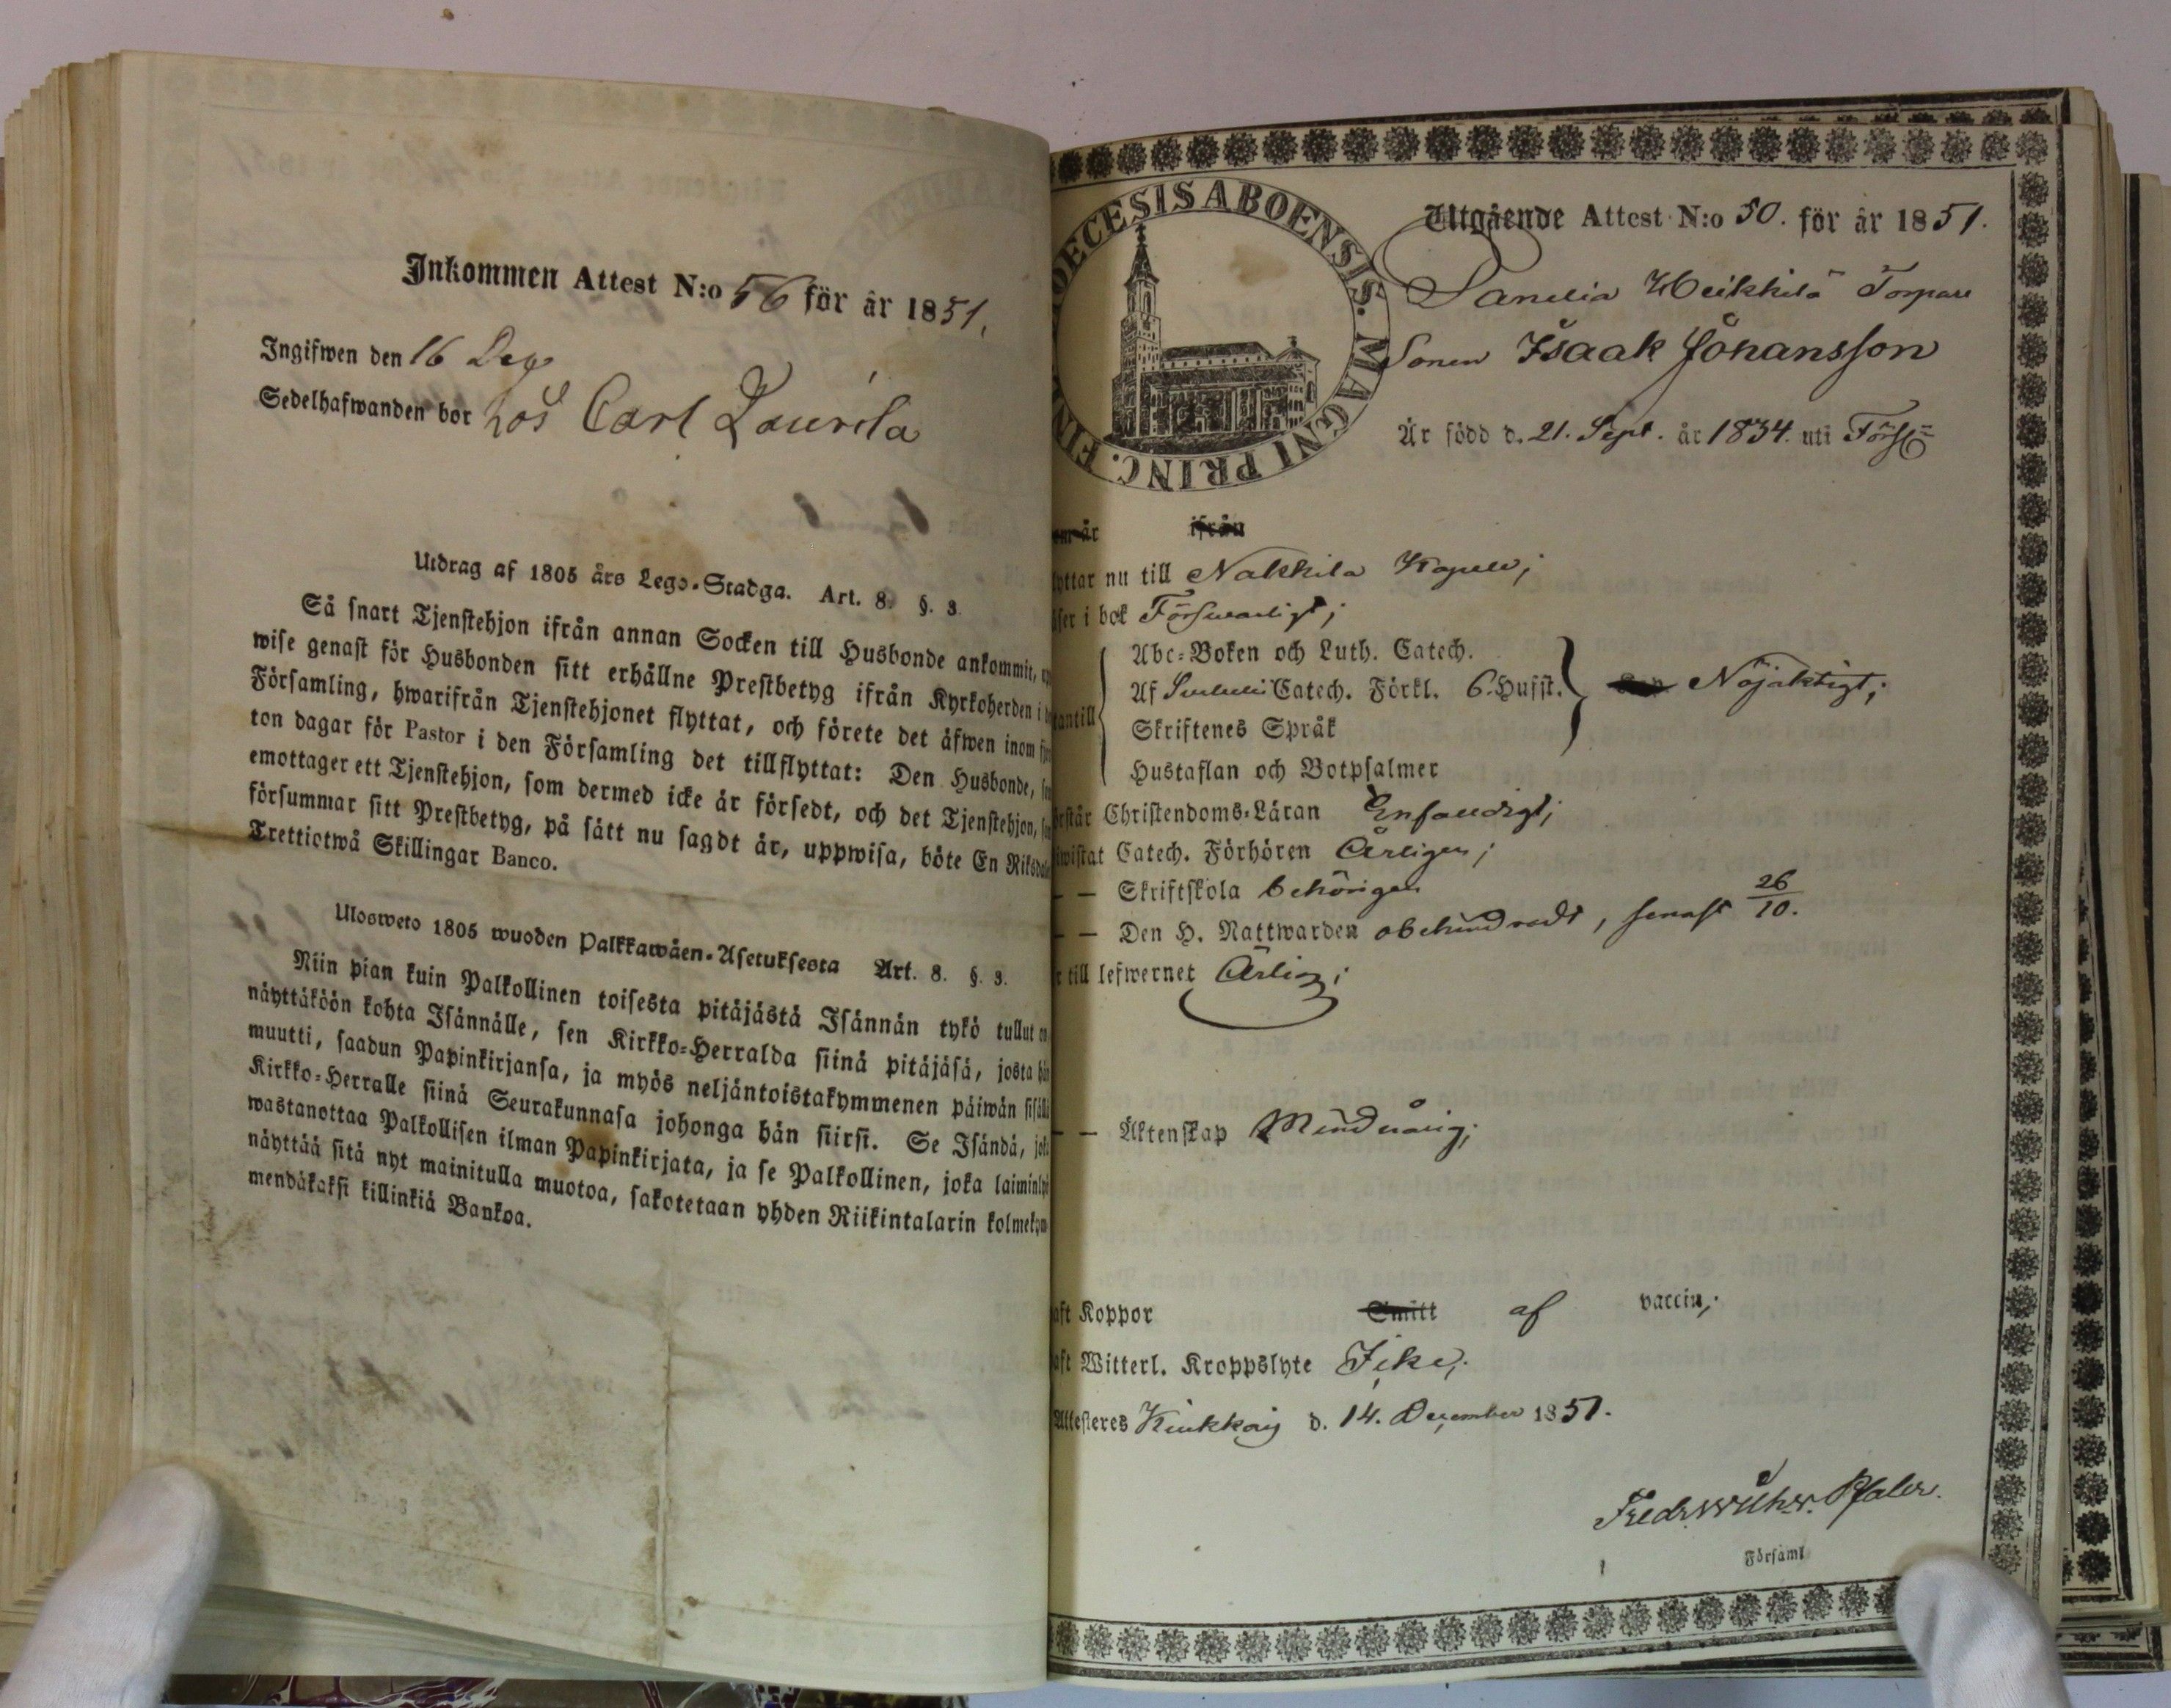 Inkommen Attest N:o 56 för år 1851.
Ingifwen den 16 Dec
Sedelhafwanden bor hos Carl Laurila
Utdrag af 1805 års Lego-Stadga. Art. 8. §. 3.
Så snart Tjenstehjon ifrån annan Socken till Husbonde ankommit,
wise genast för Husbonden sitt erhållne Prestbetyg ifrån Kyrkoherden i
Församling, hwarifrån Tjenstehjonet flyttat, och förete det äfwen inom
ton dagar för Pastor i den Församling det tillflyttat: Den Husbonde,
emottager ett Tjenstehjon, som dermed icke är försedt, och det Tjenstehjon,
försummar sitt Prestbetyg, på sätt nu sagdt är, uppwisa, böte En Riksdaler
Trettiotwå Skillingar Banco.
Ulosweto 1805 wuoden Palkkawäen-Asetuksesta Art. 8. §. 3.
Niin pian kuin Palkollinen toisesta pitäjästä Isännän tykö tullut on
näyttäköön kohta Isännälle, sen Kirkko-Herralda siinä pitäjäsä, josta hän
muutti, saadun Papinkirjansa, ja myös neljäntoistakymmenen päiwän sisällä
Kirkko-Herralle siinä Seurakunnasa johonga hän siirsi. Se Isändä, joka
wastanottaa Palkollisen ilman Papinkirjata, ja se Palkollinen, joka laiminlyö
näyttää sitä nyt mainitulla muotoa, sakotetaan yhden Riikintalarin kolmekym
mendäkaksi killinkiä Bankoa.
DIOECESIS ABOENSIS. MAGNI PRINC. FINL
Utgående Attest N:o 50. för år 1851.
Heikkilä Torpare
Sonen Isaak Johansson
Är född d. 21. Sept. år 1834. uti
är ifrån
yttar nu till Nakkila Kapell;
äser i bok Förswarligt;
Abc-Boken och Luth. Catech.
Af Catech. Förkl. 6. Husst.
antill Nöjaktigt;
Skriftenes Språk
Hustaflan och Botpsalmer
rstår Christendoms-Läran Enfaldigt;
wistat Catech. Förhören Årligen;
— — Skriftskola behörigen
— — Den H. Nattwarden obehindradt, senast 26/10.
r till lefwernet Ärlig;
— — Äktenskap Mindreårig;
aft Koppor Smitt af vaccin;
aft Witterl. Kroppslyte Icke;
Attesteres d. 14. December 1851.
Fredr. Wilh. Pfaler.
Församl